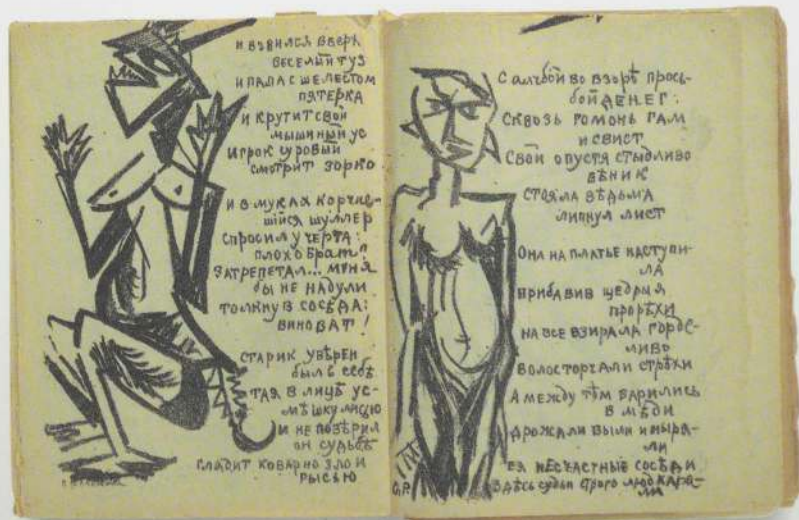 и взвился вверх
веселый туз
и пала с шелестом
пятерка
и крутит свой
мышиный ус
игрок суровый
смотрит зорко
и в муках корчив-
шийся шуллер
спросил у черта:
плохо брат?
затрепетал... меня
бы не надули
толкнув соседа:
виноват!
старик уверен
был в себѣ
тая в лицѣ ус-
мѣшку лисью
и не повѣрил
он судьбѣ
глядит коварно зло и
рысью
С алчбой во взорѣ прось-
бой денег:
сквозь гомонь гам
и свист
Свой опустя стыдливо
вѣник
стояла вѣдьма
липнул лист
она на платье наступи-
ла
прибавив щедрыя
прорѣхи
на все взирала горде-
ливо
волос торчали стрѣхи
А между тѣм варились
в мѣди
дрожали выли и ныря-
ли
ея несчастные сосѣди
здѣсь судьи строго люд кара-
ли